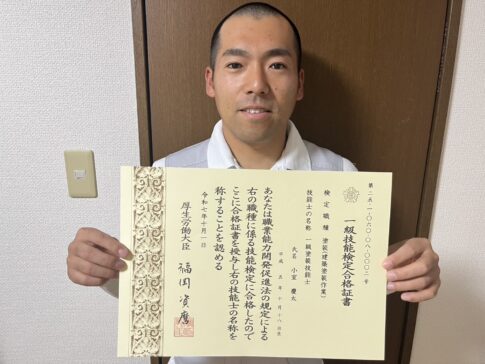 一級技能検定合格証書
検定職種 塗装(建築塗装作業)
技能士の名称 一級塗装技能士
氏名 小室 慶太
あなたは職業能力開発促進法の規定による
右の職種に係る技能検定に合格したので
ここに合格証書を授与し右の技能士の名称を
称することを認める
令和七年十月一日
厚生労働大臣 福岡資麿